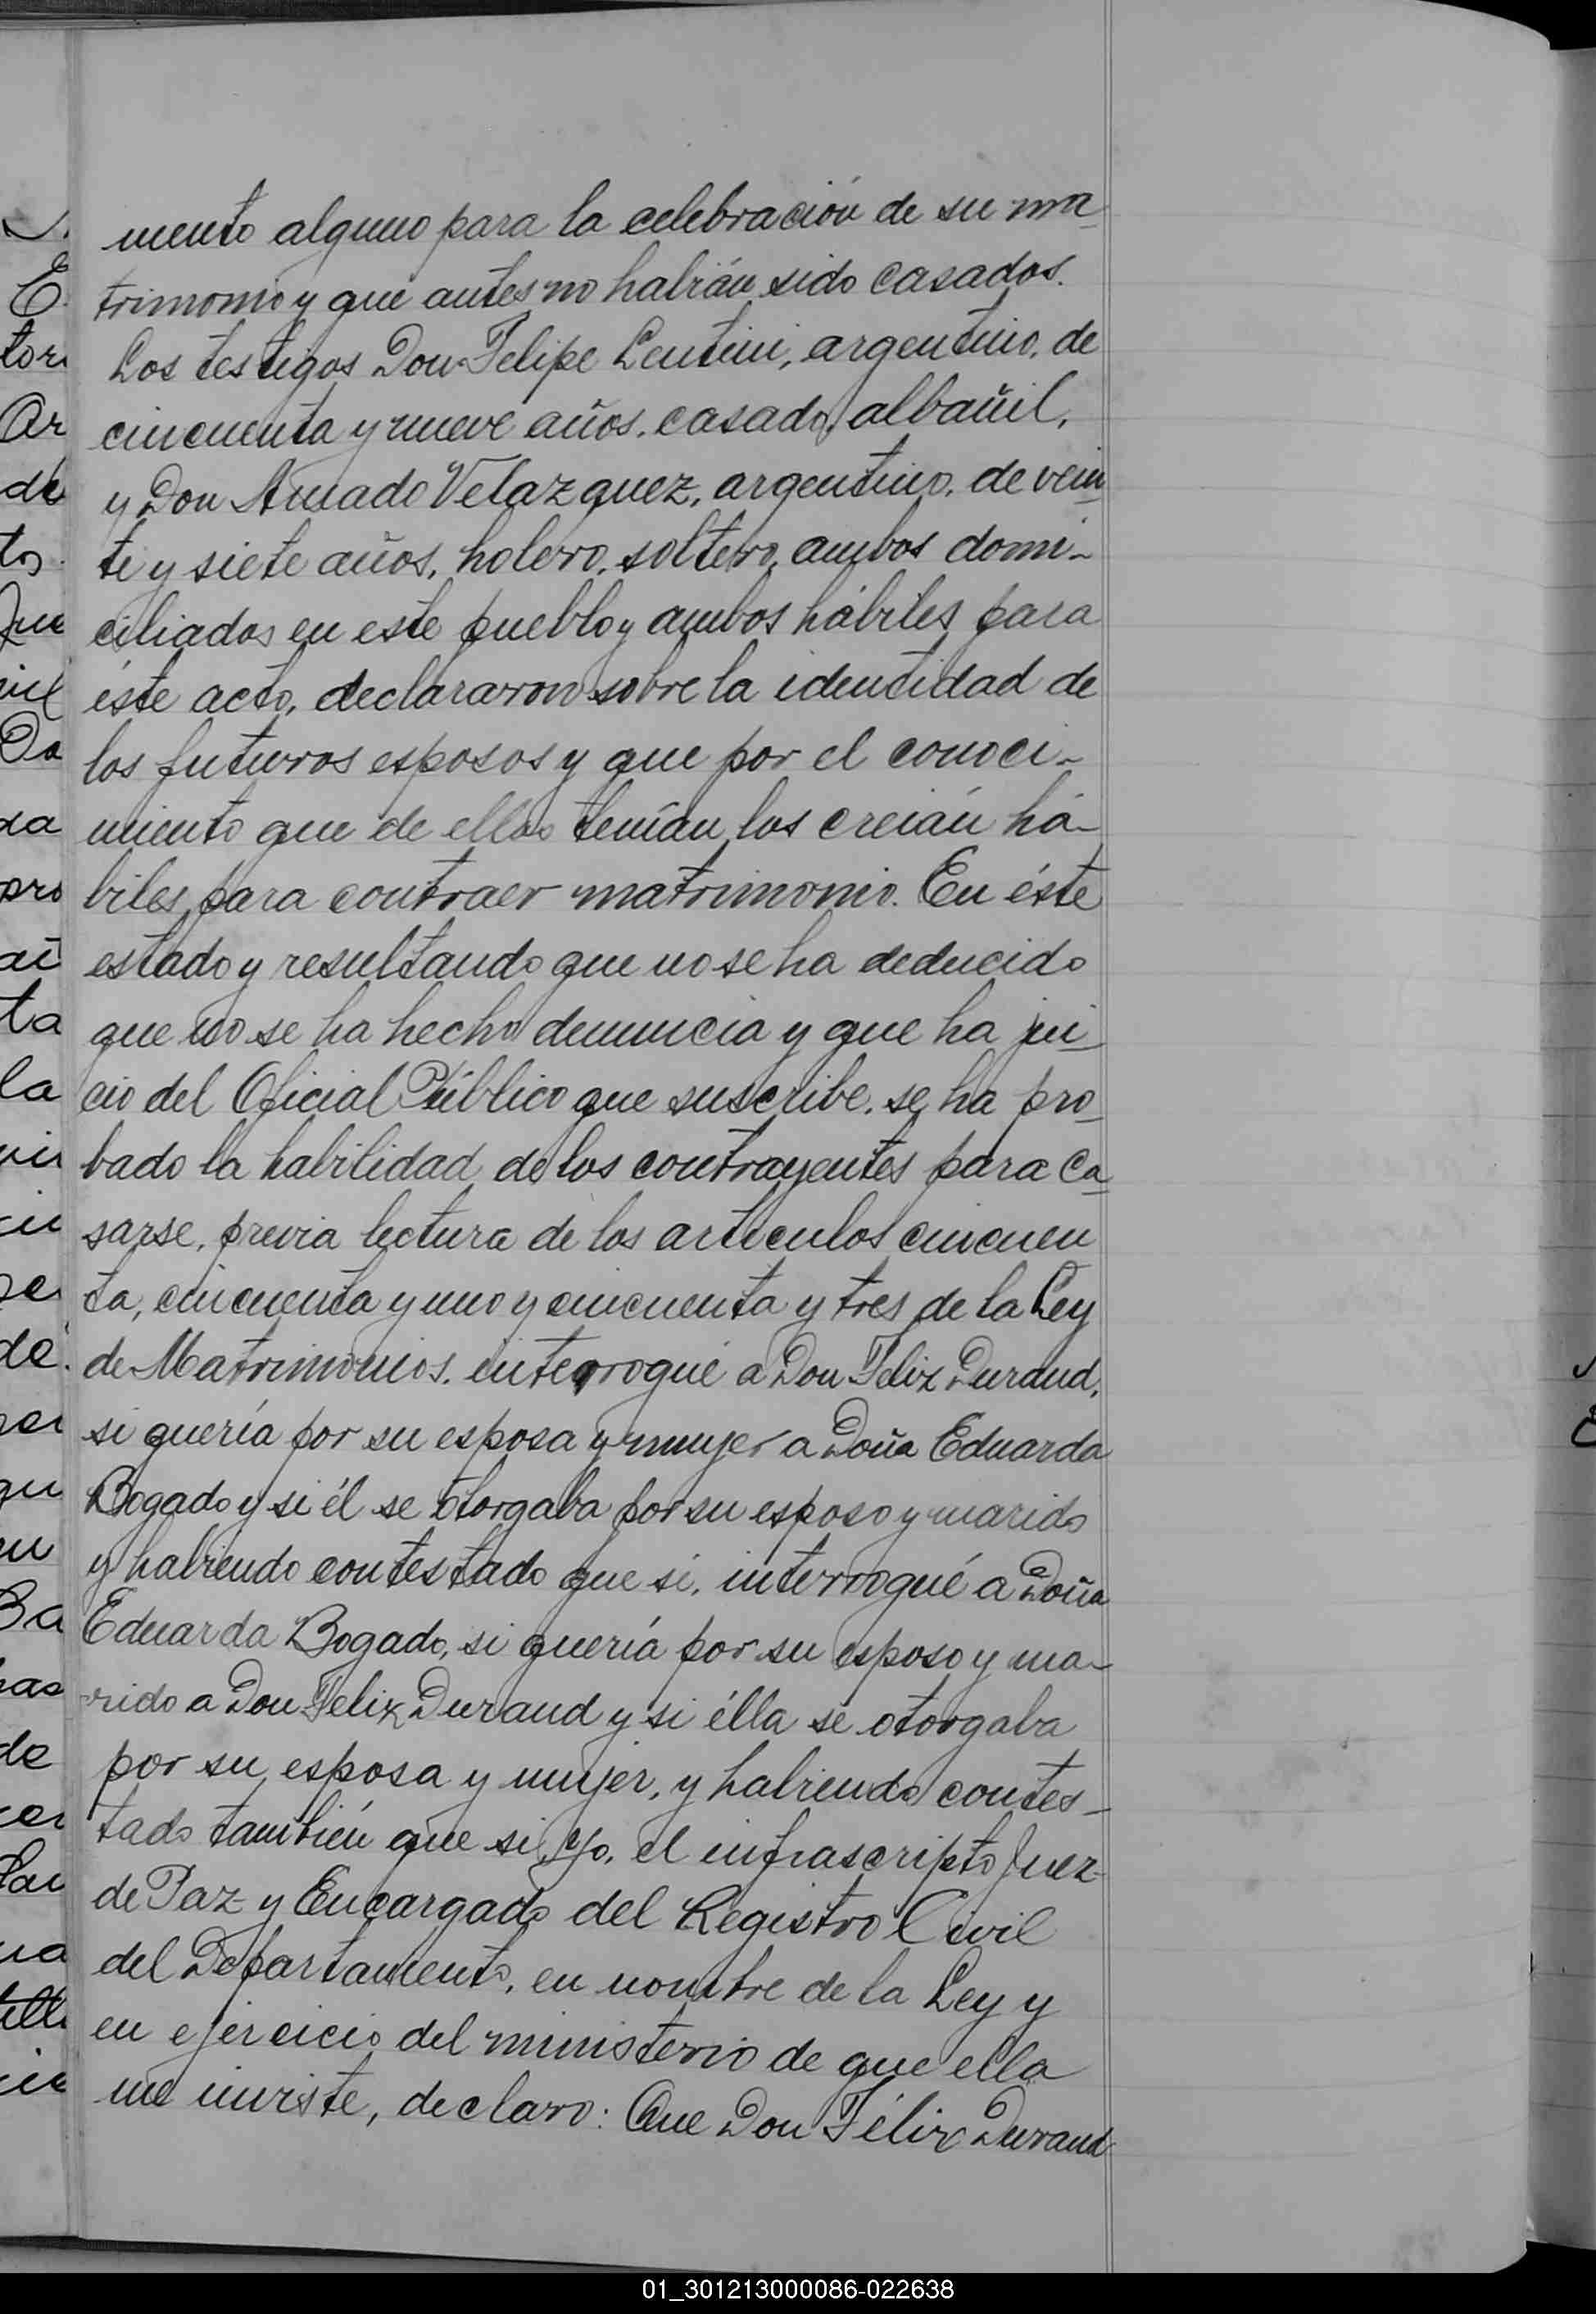 mento alguno para la celebración de su ma-
trimonio y que antes no habián sido casados.
Los testigos Don Felipe Lentini, argentino, de
cincuenta y nueve años, casado, albañil,
y Don Amado Velazquez, argentino, de vein-
te y siete años, holero, soltero, ambos domi-
ciliados en este pueblo y ambos hábiles para
éste acto, declararon sobre la identidad de
los futuros esposos y que por el conoci-
miento que de ellos tenían los creián há-
biles para contraer matrimonio. En éste
estado y resultando que no se ha deducido
que no se ha hecho denuncia y que ha jui-
cio del Oficial Público que suscribe, se ha pro-
bado la habilidad de los contrayentes para ca-
sarse, previa lectura de los artículos cincuen
ta, cincuenta y uno y cincuenta y tres de la Ley
de Matrimonios, interrogué a Don Feliz Durand,
si quería por su esposa y mujer a Doña Eduarda
Bogado y si él se otorgaba por su esposo y marido
y habiendo contestado que si, interrogué a Doña
Eduarda Bogado, si quería por su esposo y ma-
rido a Don Feliz Durand y si élla se otorgaba
por su esposa y mujer, y habiendo contes-
tado también que si, Yo, el infrascripto Juez
de Paz y Encargado del Registro Civil
del Departamento, en nombre de la Ley y
en ejercicio del ministerio de que ella
me inviste, declaro: Que Don Félix Durand
01_301213000086-022638